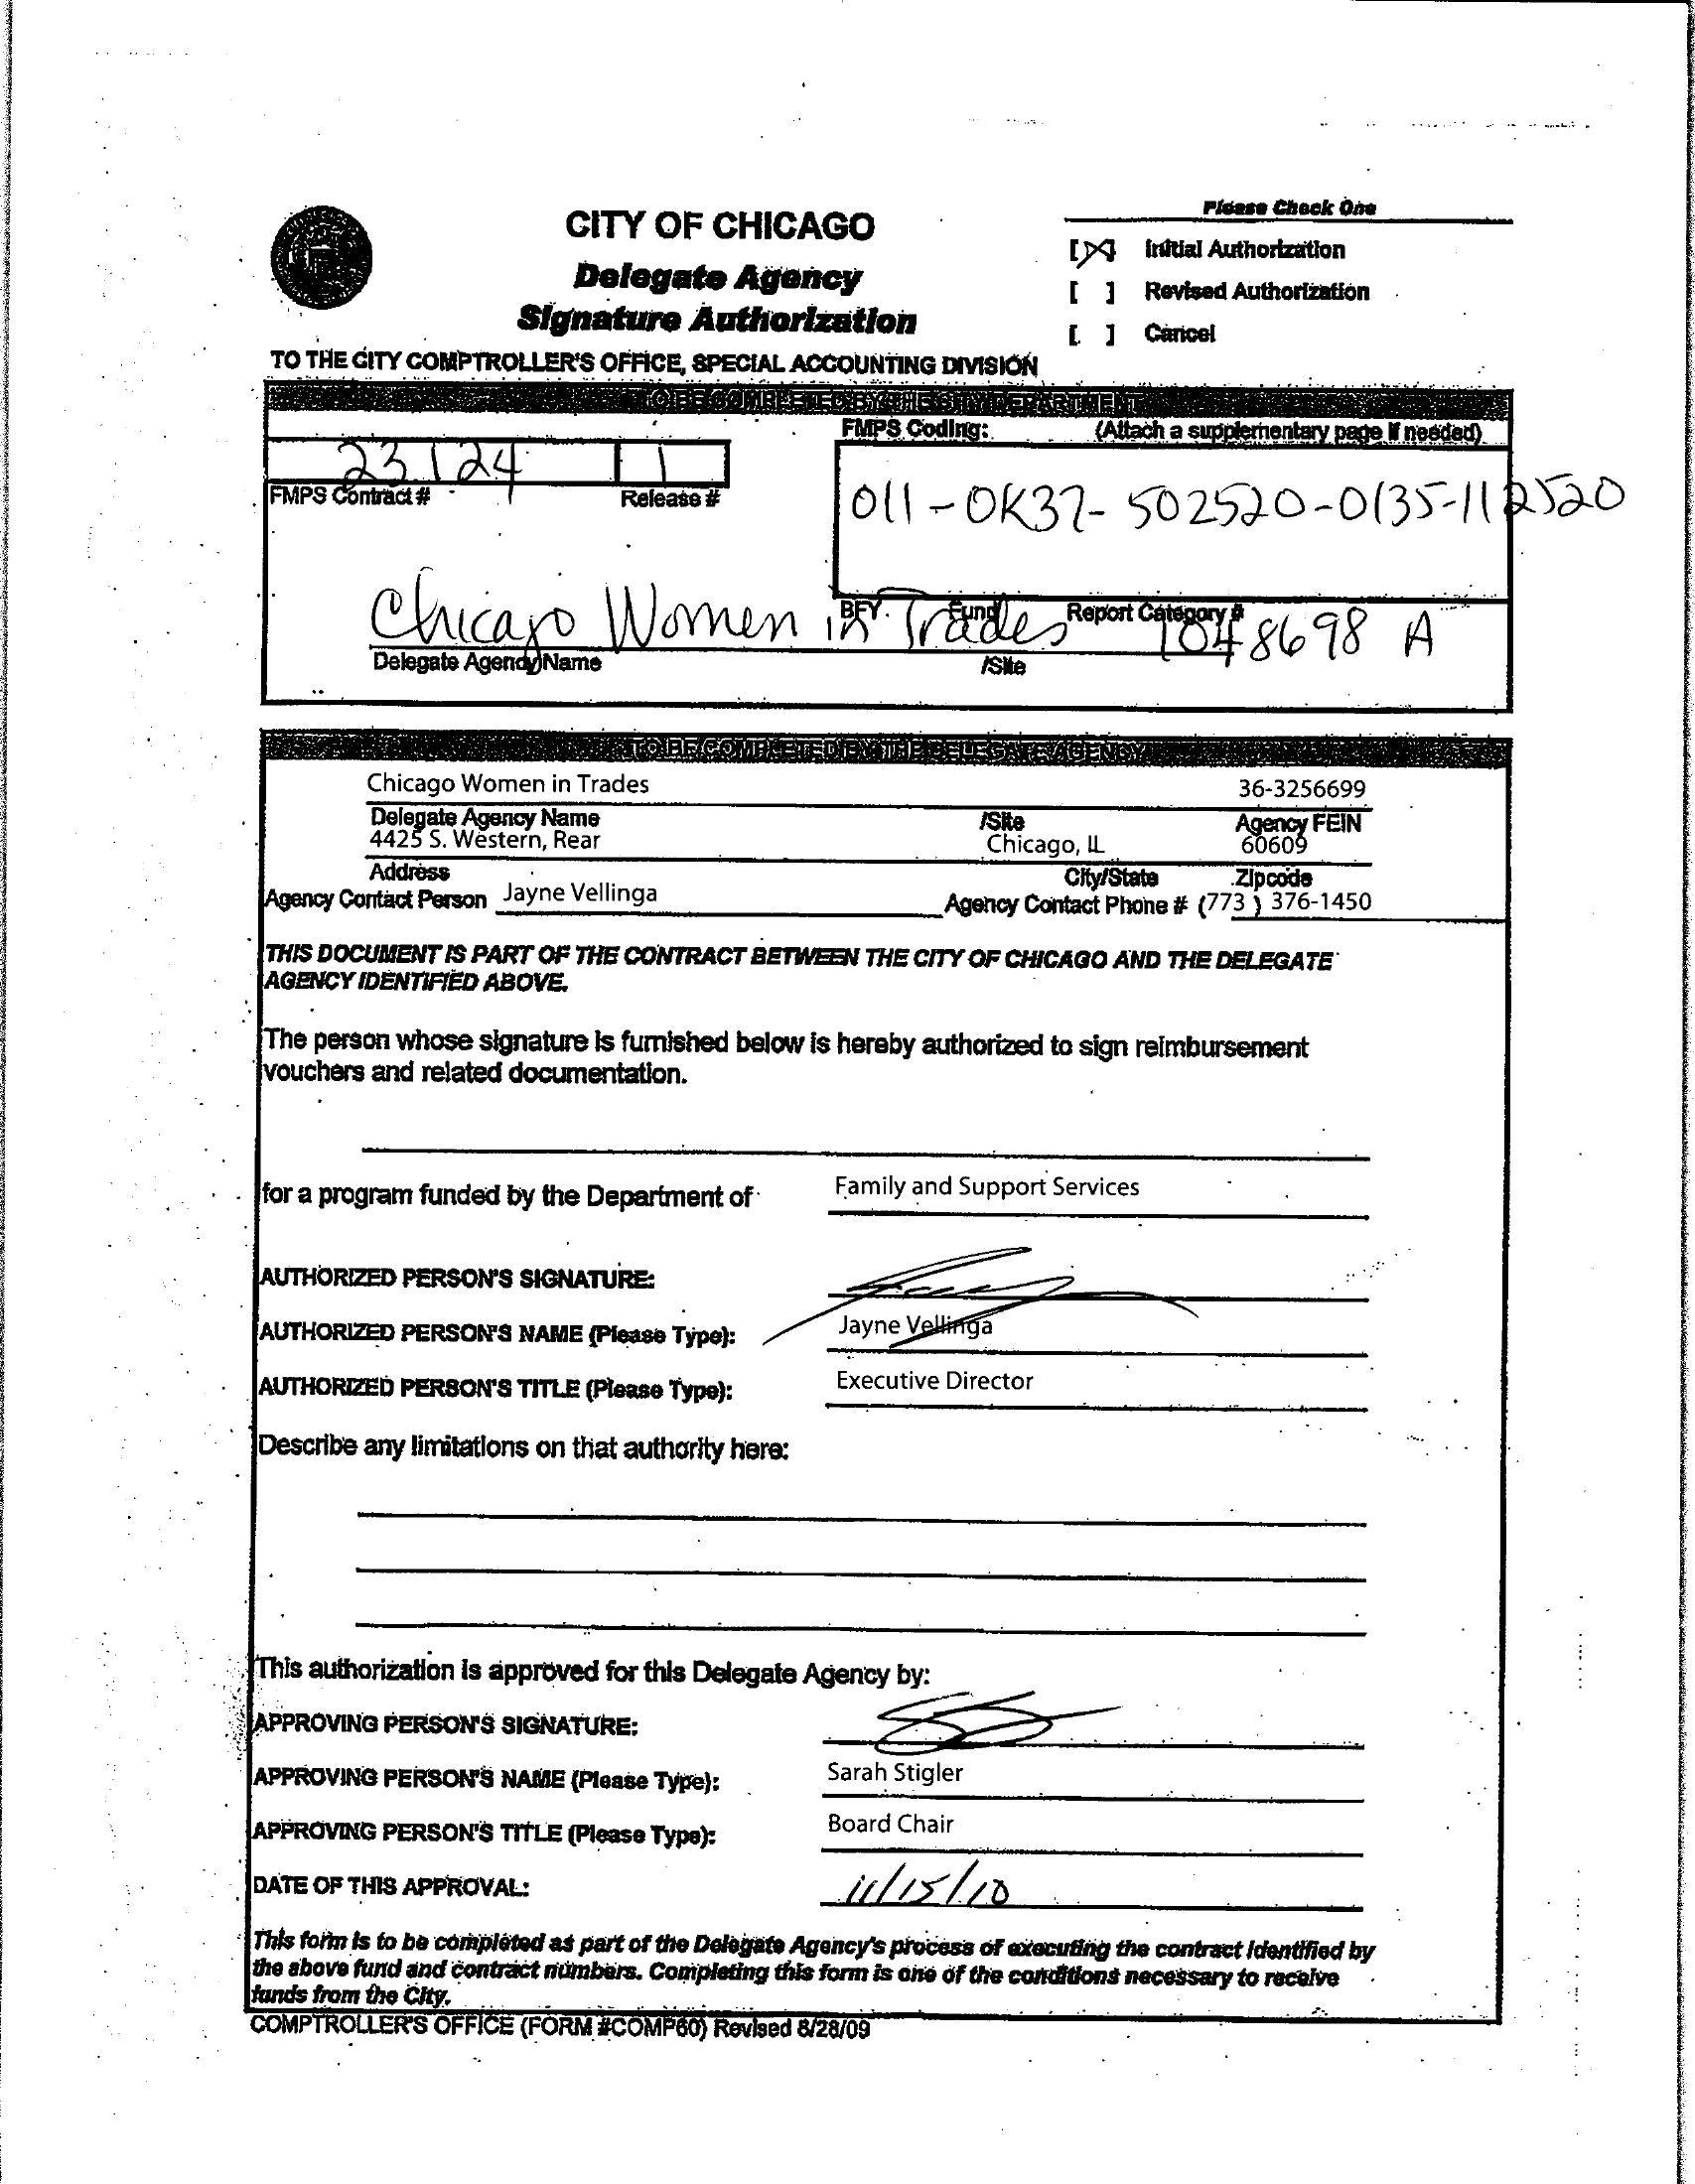 Please Check One
CITY OF CHICAGO
Delegate Agency
Signature Authorization
[X] Initial Authorization
[ ] Revised Authorization
[ ] Cancel
TO THE CITY COMPTROLLER'S OFFICE, SPECIAL ACCOUNTING DIVISION
TO BE COMPLETED BY THE CITY DEPARTMENT
FMPS Coding: (Attach a supplementary page if needed)
23124 1
FMPS Contract # Release #
011-0K37-502520-0135-112520
BFY Fund Report Category #
Chicago Women in Trades 1048698 A
Delegate Agency Name /Site
TO BE COMPLETED BY THE DELEGATE AGENCY
Chicago Women in Trades 36-3256699
Delegate Agency Name /Site Agency FEIN
4425 S. Western, Rear Chicago, IL 60609
Address City/State Zipcode
Agency Contact Person Jayne Vellinga Agency Contact Phone # (773) 376-1450
THIS DOCUMENT IS PART OF THE CONTRACT BETWEEN THE CITY OF CHICAGO AND THE DELEGATE
AGENCY IDENTIFIED ABOVE.
The person whose signature is furnished below is hereby authorized to sign reimbursement
vouchers and related documentation.
for a program funded by the Department of Family and Support Services
AUTHORIZED PERSON'S SIGNATURE:
AUTHORIZED PERSON'S NAME (Please Type): Jayne Vellinga
AUTHORIZED PERSON'S TITLE (Please Type): Executive Director
Describe any limitations on that authority here:
This authorization is approved for this Delegate Agency by:
APPROVING PERSON'S SIGNATURE:
APPROVING PERSON'S NAME (Please Type): Sarah Stigler
APPROVING PERSON'S TITLE (Please Type): Board Chair
DATE OF THIS APPROVAL: 11/15/10
This form is to be completed as part of the Delegate Agency's process of executing the contract identified by
the above fund and contract numbers. Completing this form is one of the conditions necessary to receive
funds from the City.
COMPTROLLER'S OFFICE (FORM #COMP60) Revised 8/28/09